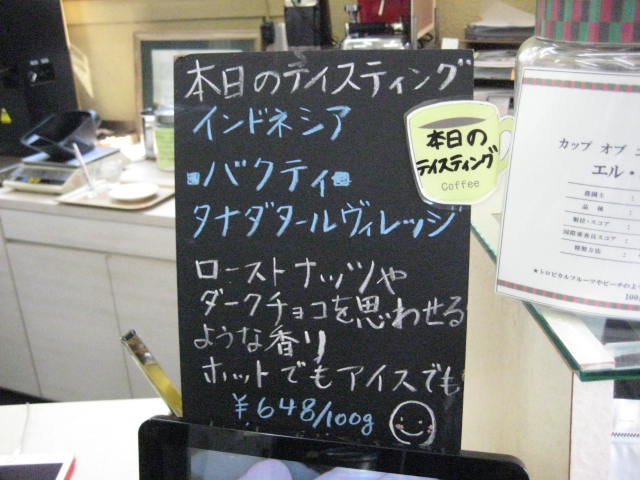 本日のテイスティング
インドネシア
バクティ
タナダタールヴィレッジ
ローストナッツや
ダークチョコを思わせる
ような香り
ホットでもアイスでも
¥648/100g
本日の
テイスティング
Coffee
カップ オブ
エル・
農園主
品 種
順位・スコア
国際審査員スコア
精製方法
★トロピカルフルーツやピーチのよう
100